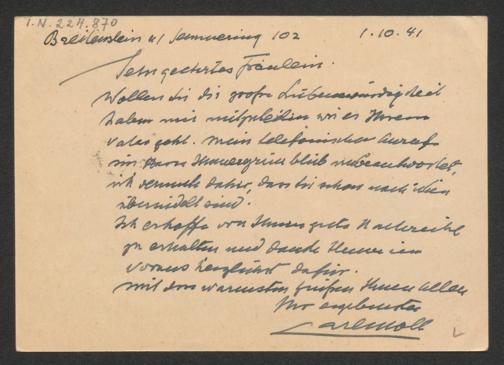 I.N. 224.870
Breitenstein a/ Semmering 102 1.10.41
Sehr geehrtes Fräulein.
Wollen Sie die große Liebenswürdigkeit
haben mir mitzuteilen wie es Ihrem
Vater geht. Mein telefonischer Anruf
im Haus blieb unbeantwortet,
ich vermute daher, dass Sie schon nach Wien
übersiedelt sind.
Ich erhoffe von Ihnen gute Nachricht
zu erhalten und danke Ihnen im
voraus herzlichst dafür.
Mit den wärmsten Grüßen Ihnen Allen
Ihr ergebenster
Carl Moll